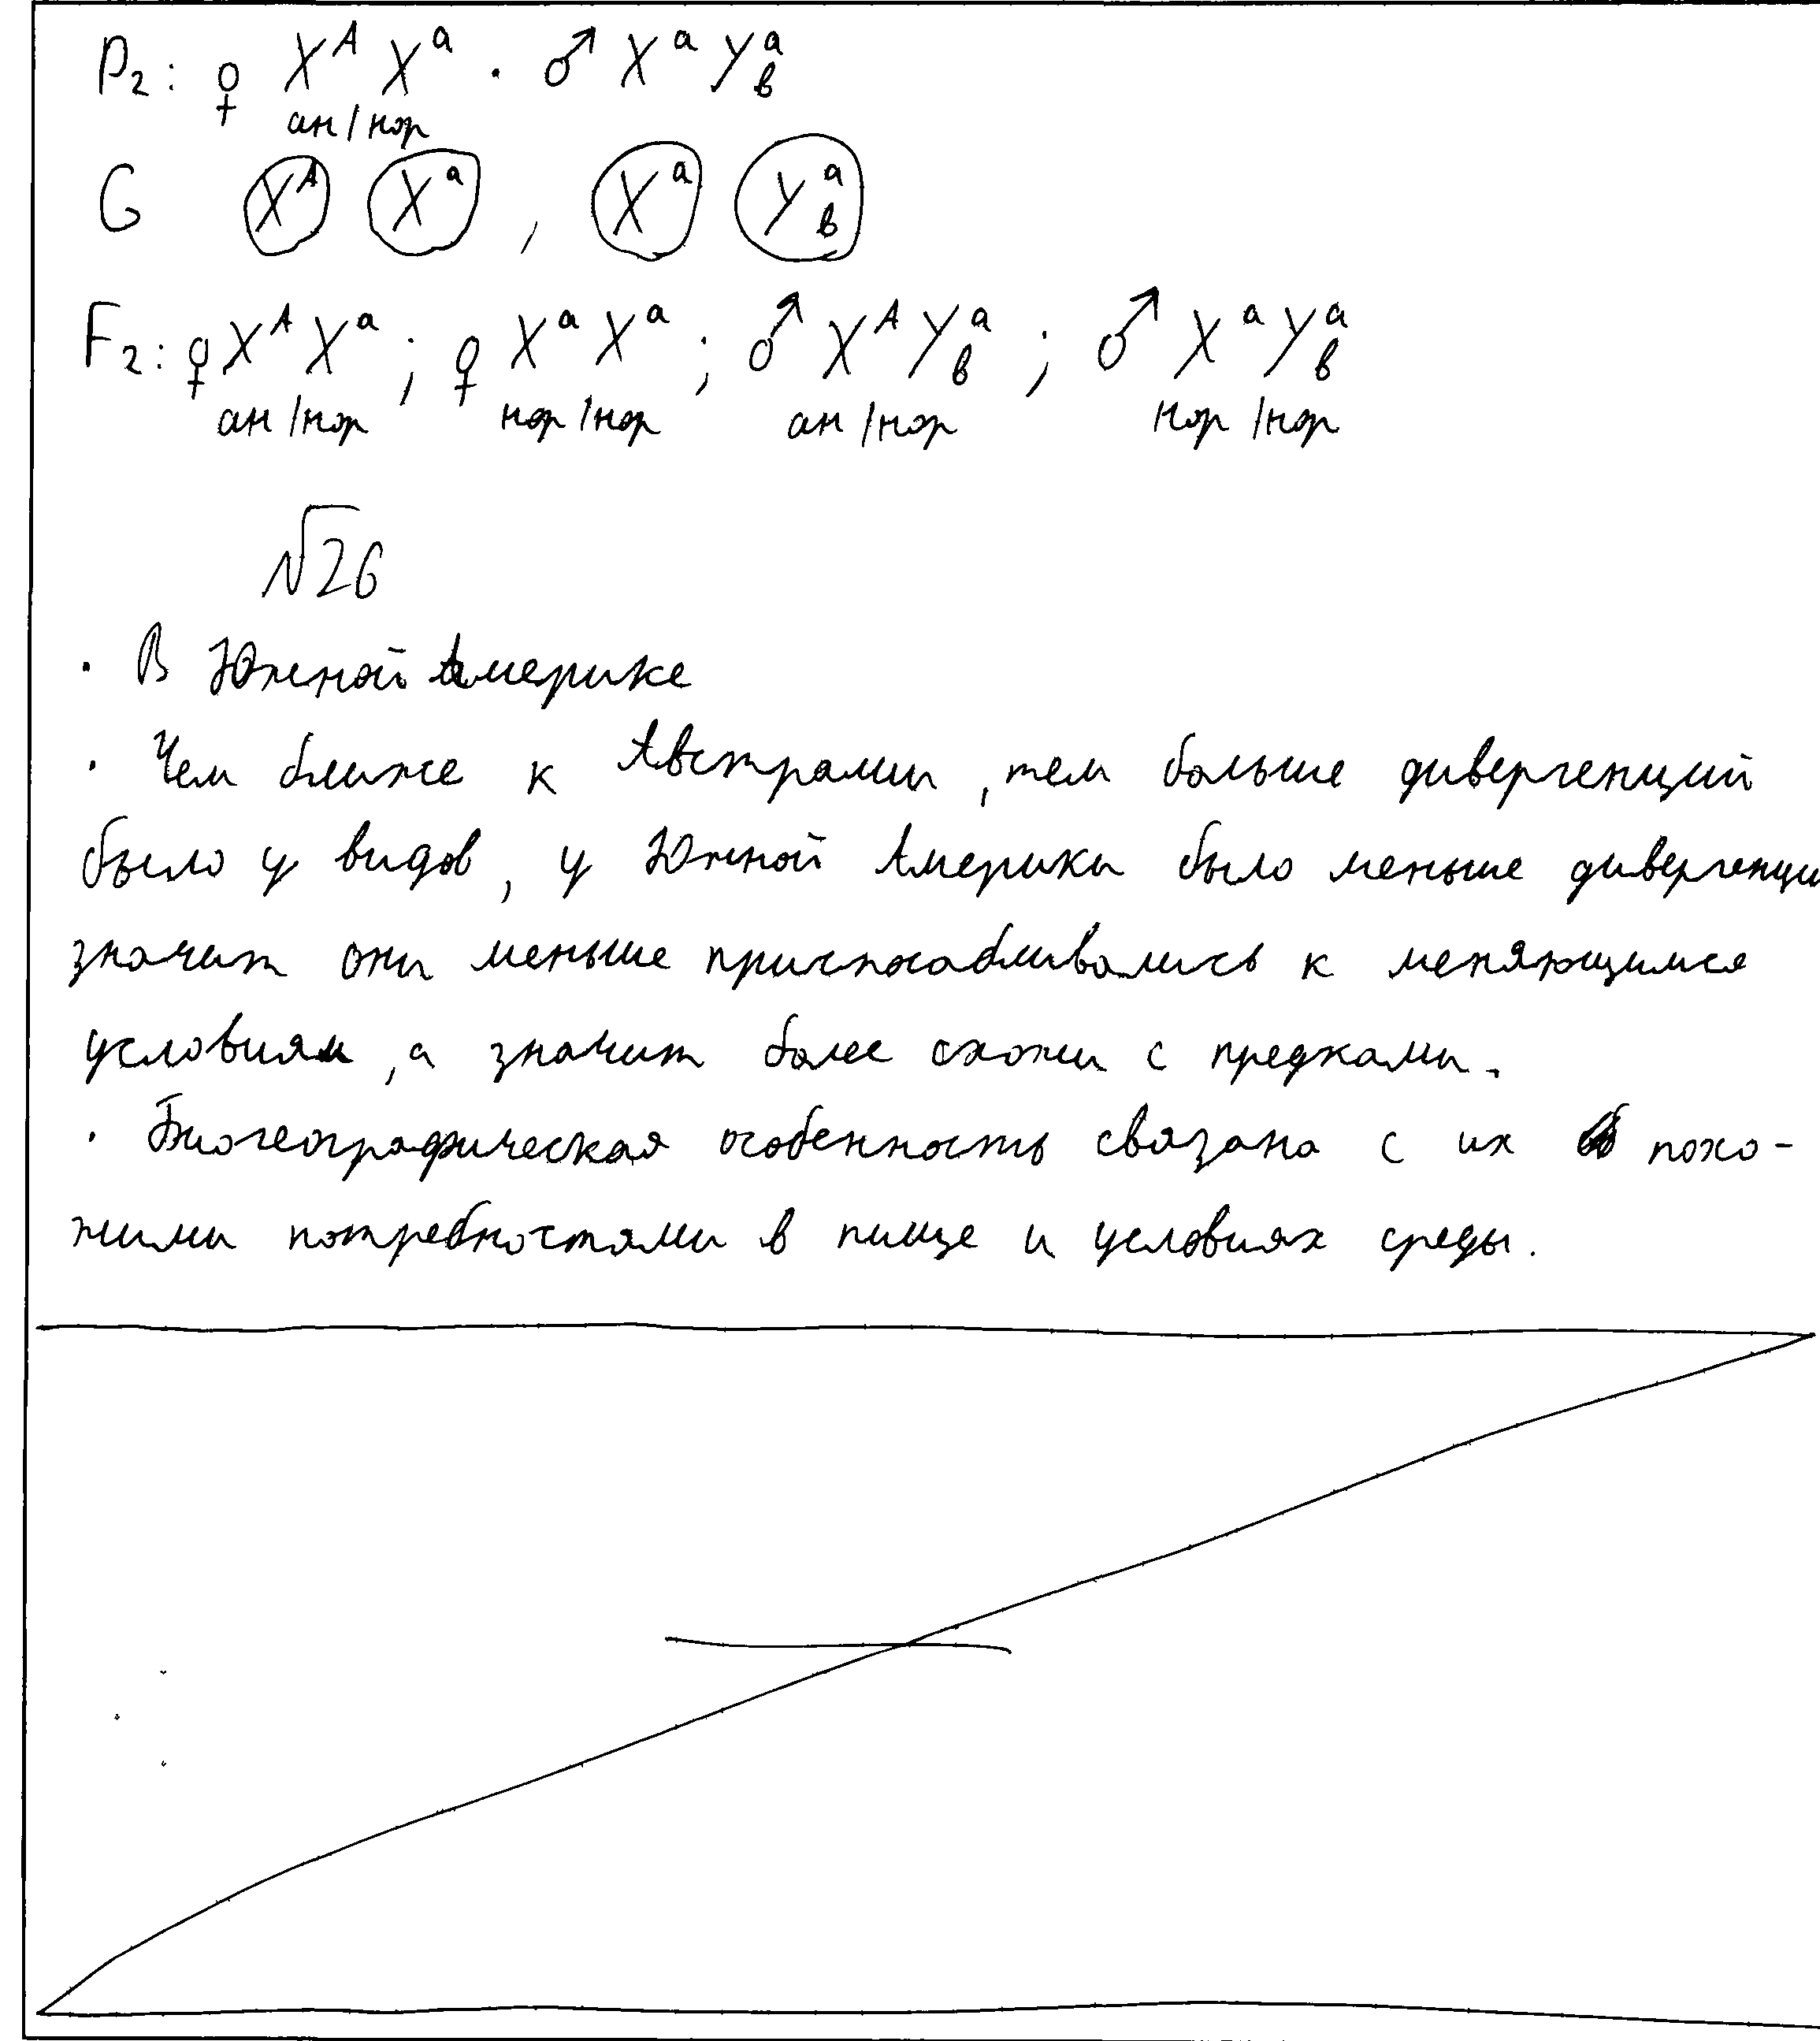 P₂: ♀ Xᴬ Xᵃ · ♂ Xᵃ Yᵃв
ан/нор
G Xᴬ Xᵃ , Xᵃ Yᵃв
F₂: ♀ Xᴬ Xᵃ ; ♀ Xᵃ Xᵃ ; ♂ Xᴬ Yᵃв ; ♂ Xᵃ Yᵃв
ан/нор нор/нор ан/нор нор/нор
√26
· В Южной Америке
· Чем ближе к Австралии, тем больше дивергенций
было у видов, у Южной Америки было меньше дивергенци
значит они меньше приспосабливались к меняющимся
условиям, а значит более схожи с предками.
· Биогеографическая особенность связана с их похо-
жими потребностями в пище и условиях среды.